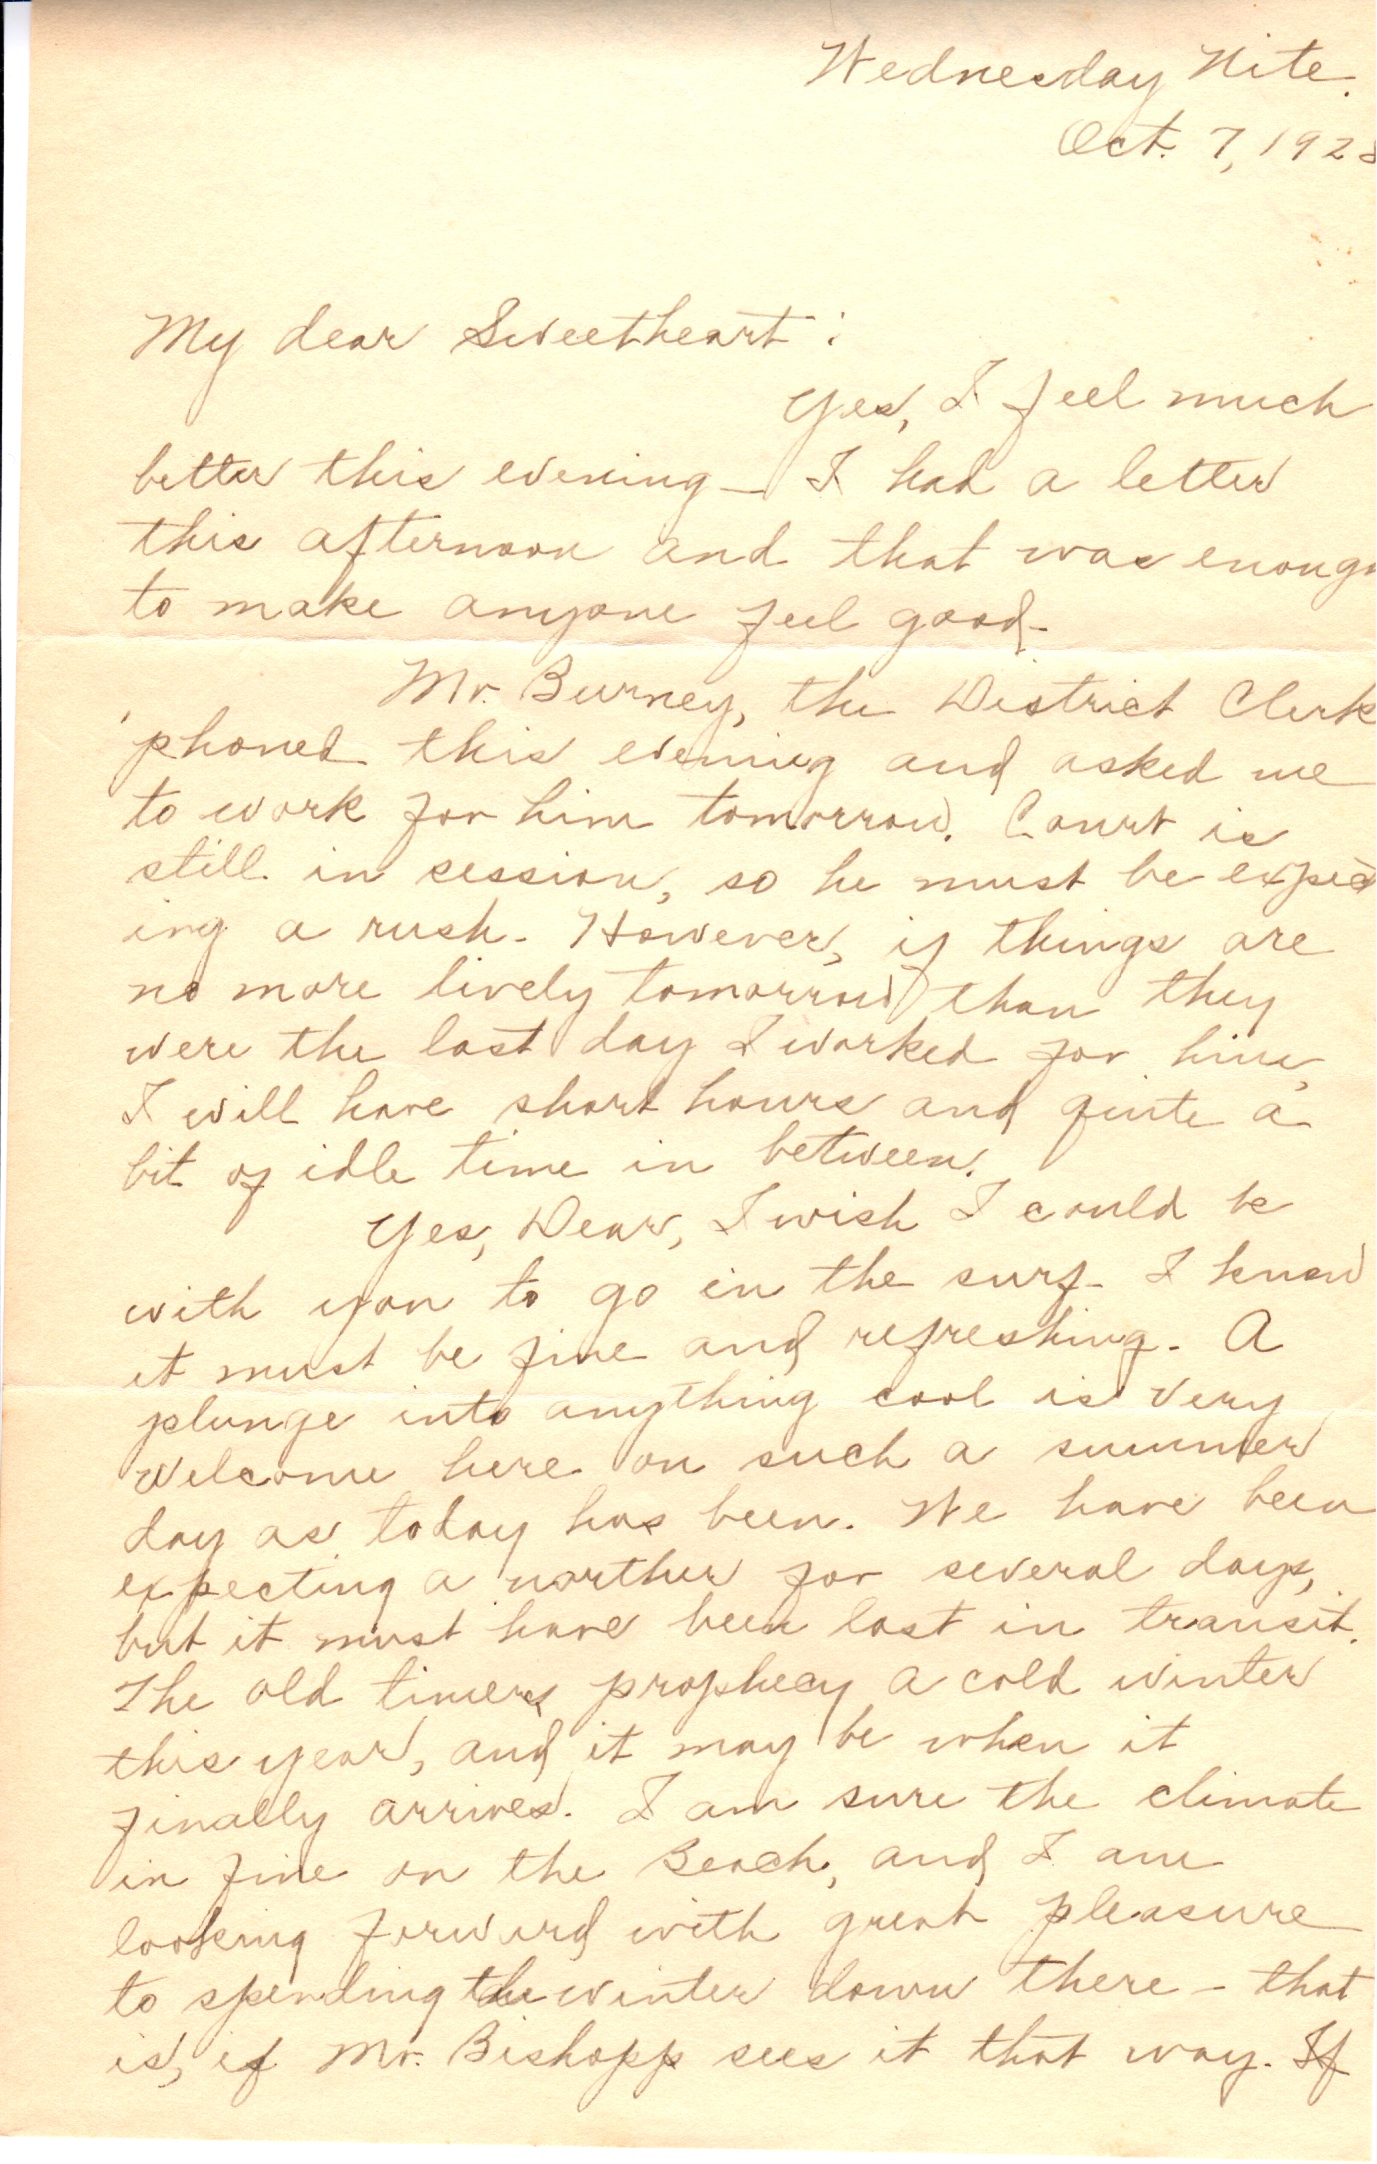 Wednesday Nite.
Oct. 7, 1928
My dear Sweetheart:
Yes, I feel much
better this evening – I had a letter
this afternoon and that was enough
to make anyone feel good.
Mr. Burney, the District Clerk
'phoned this evening and asked me
to work for him tomorrow. Court is
still in session, so he must be expect
ing a rush. However, if things are
no more lively tomorrow than they
were the last day I worked for him,
I will have short hours and quite a
bit of idle time in between.
Yes, Dear, I wish I could be
with you to go in the surf. I know
it must be fine and refreshing. A
plunge into anything cool is very
welcome here on such a summer
day as today has been. We have been
expecting a norther for several days,
but it must have been lost in transit.
The old timers prophecy a cold winter
this year, and it may be when it
finally arrives. I am sure the climate
in fine on the Beach, and I am
looking forward with great pleasure
to spending the winter down there – that
is, if Mr. Bishopp sees it that way. If